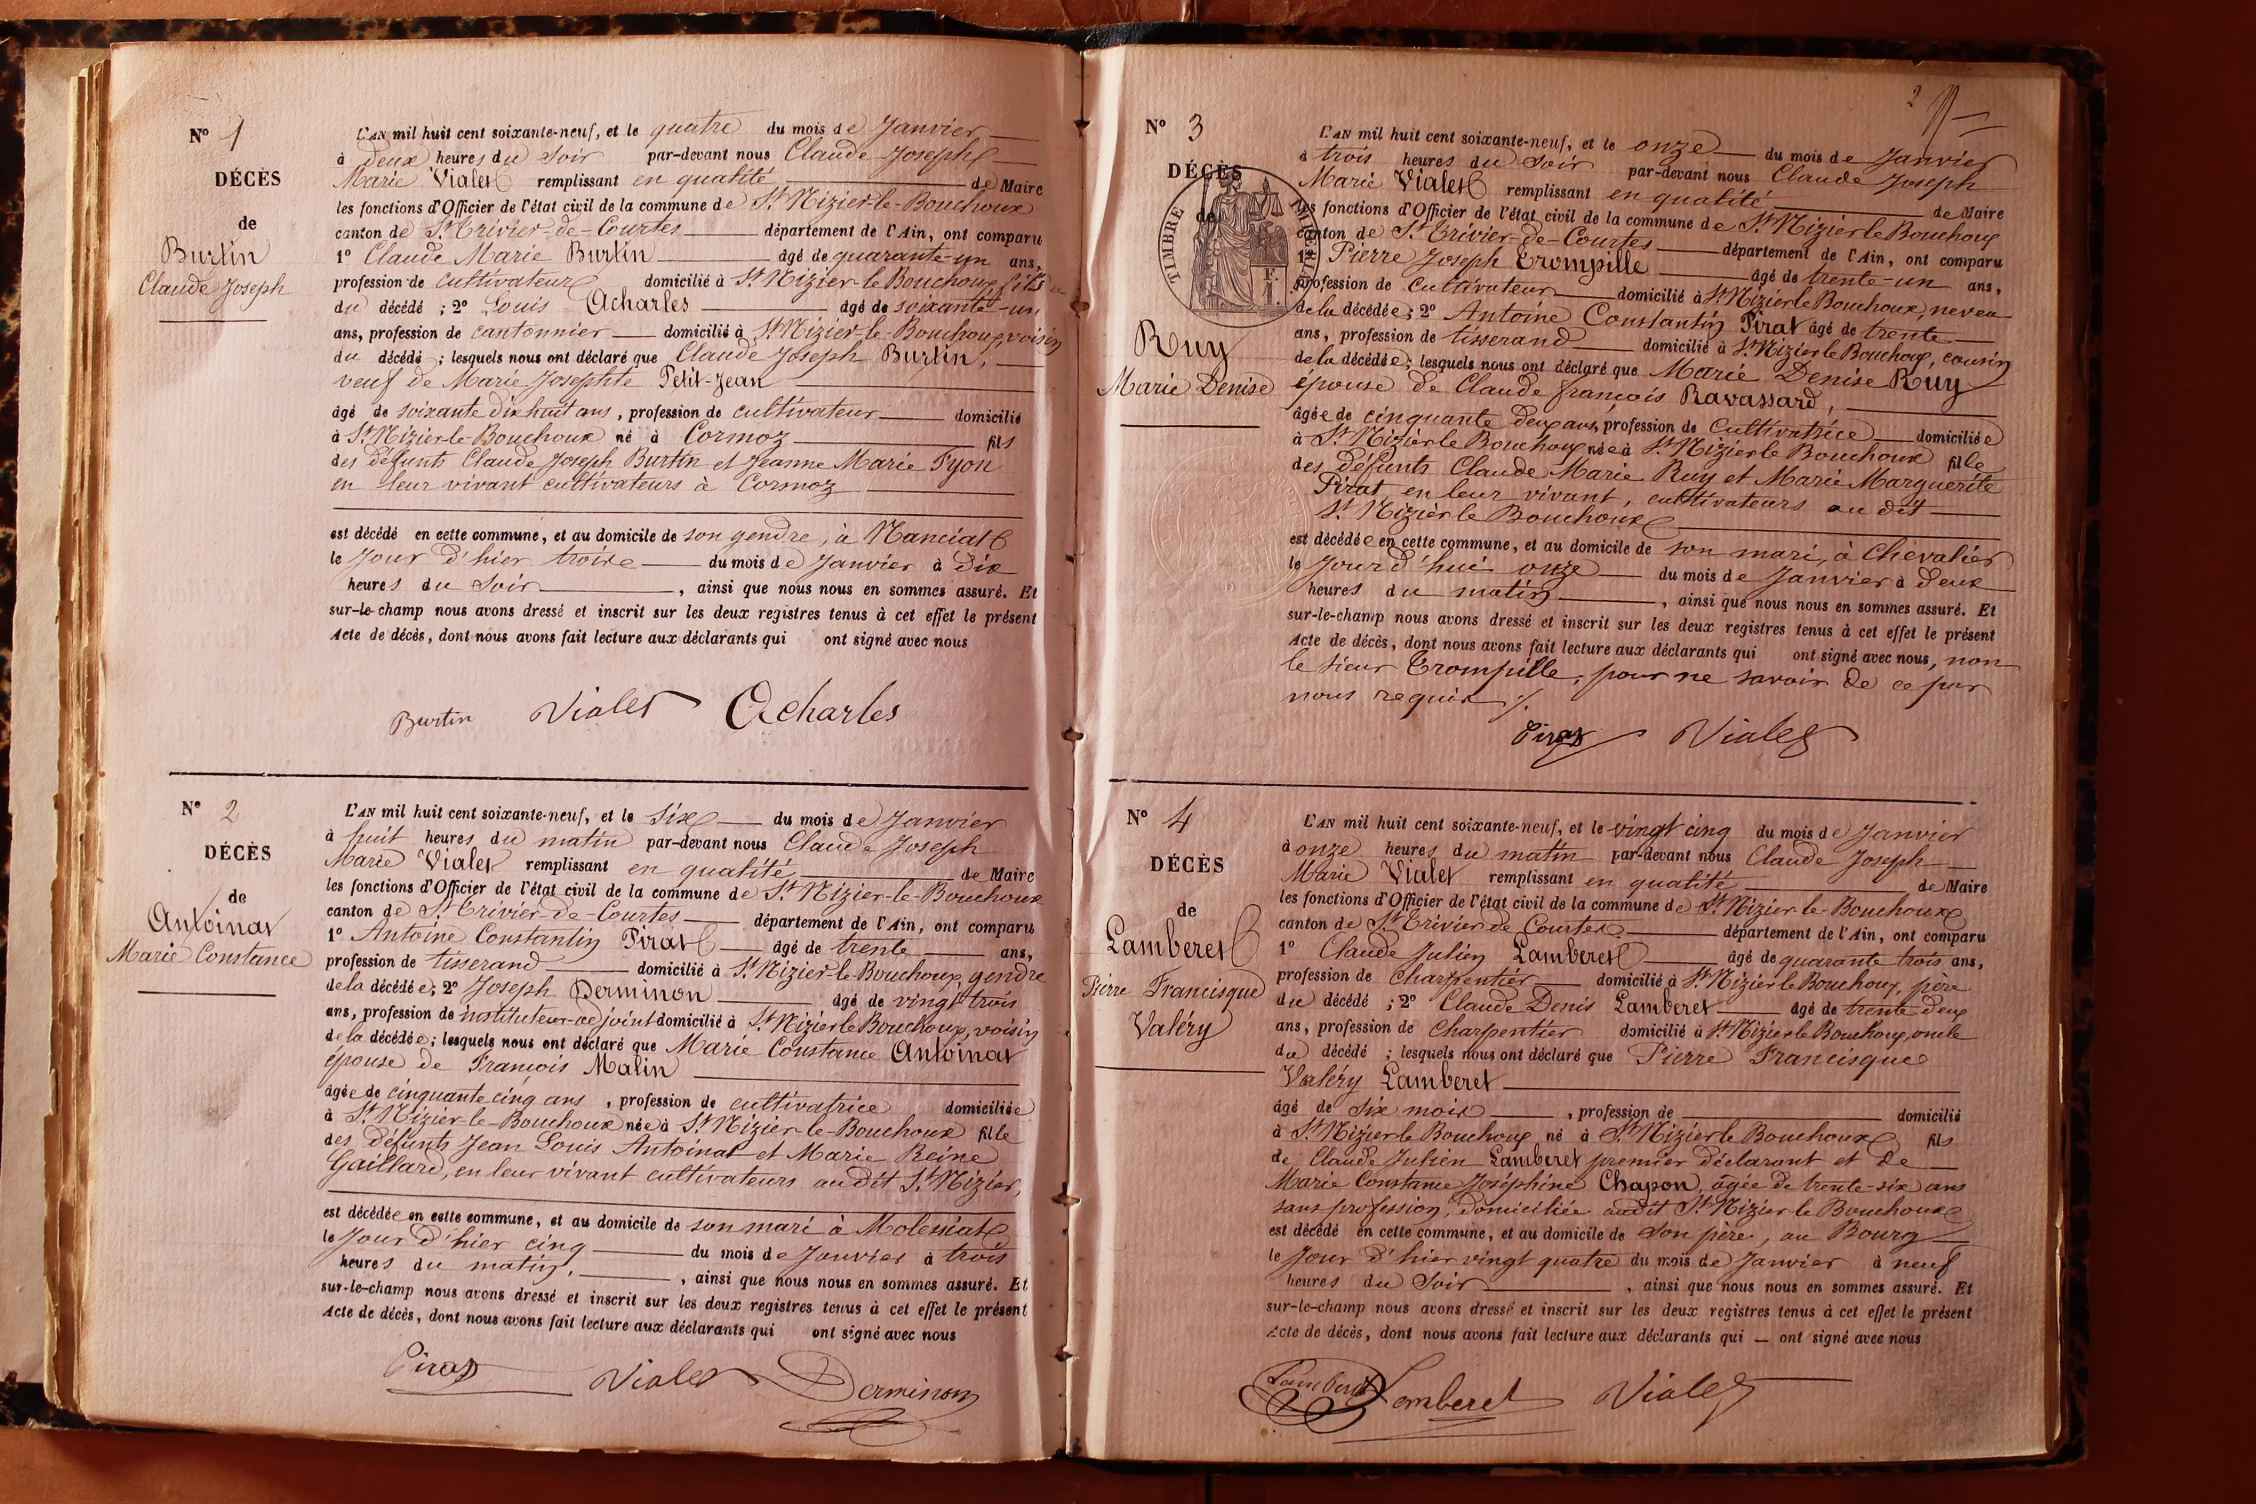 N° 1
DÉCÈS
de
Burtin
Claude Joseph
L'AN mil huit cent soixante-neuf, et le quatre du mois de Janvier
à deux heures du Soir par-devant nous Claude-Joseph
Marie Vialet remplissant en qualité de Maire
les fonctions d'Officier de l'état civil de la commune de St Nizier-le-Bouchoux
canton de St Trivier-de-Courtes département de l'Ain, ont comparu
1° Claude Marie Burtin âgé de quarante-un ans,
profession de cultivateur domicilié à St Nizier-le-Bouchoux fils
du décédé ; 2° Louis Acharles âgé de soixante-un
ans, profession de cantonnier domicilié à St Nizier-le-Bouchoux, voisin
du décédé ; lesquels nous ont déclaré que Claude Joseph Burtin,
veuf de Marie Josephte Petit-Jean
âgé de soixante dix huit ans, profession de cultivateur domicilié
à St Nizier-le-Bouchoux né à Cormoz fils
des défunts Claude Joseph Burtin et Jeanne Marie Tyon
en leur vivant cultivateurs à Cormoz
est décédé en cette commune, et au domicile de son gendre, à Manciat
le Jour d'hier trois du mois de Janvier à dix
heures du Soir, ainsi que nous nous en sommes assuré. Et
sur-le-champ nous avons dressé et inscrit sur les deux registres tenus à cet effet le présent
Acte de décès, dont nous avons fait lecture aux déclarants qui ont signé avec nous
Burtin Vialet Acharles
N° 2
DÉCÈS
de
Antoinat
Marie Constance
L'AN mil huit cent soixante-neuf, et le six du mois de Janvier
à huit heures du matin par-devant nous Claude Joseph
Marie Vialet remplissant en qualité de Maire
les fonctions d'Officier de l'état civil de la commune de St Nizier-le-Bouchoux
canton de St Trivier-de-Courtes département de l'Ain, ont comparu
1° Antoine Constantin Pirat âgé de trente ans,
profession de tisserand domicilié à St Nizier-le-Bouchoux, gendre
de la décédée; 2° Joseph Derminon âgé de vingt trois
ans, profession de instituteur-adjoint domicilié à St Nizier le Bouchoux, voisin
de la décédée; lesquels nous ont déclaré que Marie Constance Antoinat
épouse de François Malin
âgée de cinquante cinq ans, profession de cultivatrice domiciliée
à St Nizier-le-Bouchoux née à St Nizier-le-Bouchoux fille
des défunts Jean Louis Antoinat et Marie Reine
Gaillard, en leur vivant cultivateurs audit St Nizier,
est décédée en cette commune, et au domicile de son mari à Molessiat
le Jour d'hier cinq du mois de Janvier à trois
heures du matin, ainsi que nous nous en sommes assuré. Et
sur-le-champ nous avons dressé et inscrit sur les deux registres tenus à cet effet le présent
Acte de décès, dont nous avons fait lecture aux déclarants qui ont signé avec nous
Pirat Vialet Derminon
2
N° 3
DÉCÈS
de
TIMBRE
Ruy
Marie Denise
L'AN mil huit cent soixante-neuf, et le onze du mois de Janvier
à trois heures du Soir par-devant nous Claude Joseph
Marie Vialet remplissant en qualité de Maire
les fonctions d'Officier de l'état civil de la commune de St Nizier le Bouchoux
canton de St Trivier-de-Courtes département de l'Ain, ont comparu
1° Pierre Joseph Trompille âgé de trente-un ans,
profession de cultivateur domicilié à St Nizier le Bouchoux, neveu
de la décédée; 2° Antoine Constantin Pirat âgé de trente
ans, profession de tisserand domicilié à St Nizier le Bouchoux, cousin
de la décédée; lesquels nous ont déclaré que Marie Denise Ruy
épouse de Claude françois Ravassard,
âgée de cinquante deux ans, profession de Cultivatrice domiciliée
à St Nizier le Bouchoux née à St Nizier le Bouchoux fille
des défunts Claude Marie Ruy et Marie Marguerite
Pirat, en leur vivant, cultivateurs au dit
St Nizier le Bouchoux
est décédée en cette commune, et au domicile de son mari, à Chevalier
le Jour d'hui onze du mois de Janvier à deux
heures du matin, ainsi que nous nous en sommes assuré. Et
sur-le-champ nous avons dressé et inscrit sur les deux registres tenus à cet effet le présent
Acte de décès, dont nous avons fait lecture aux déclarants qui ont signé avec nous, non
le sieur Trompille, pour ne savoir de ce par
nous requis ./.
Pirat Vialet
N° 4
DÉCÈS
de
Lamberet
Pierre Francisque
Valéry
L'AN mil huit cent soixante-neuf, et le vingt cinq du mois de Janvier
à onze heures du matin par-devant nous Claude Joseph
Marie Vialet remplissant en qualité de Maire
les fonctions d'Officier de l'état civil de la commune de St Nizier le Bouchoux
canton de St Trivier de Courtes département de l'Ain, ont comparu
1° Claude Julien Lamberet âgé de quarante trois ans,
profession de Charpentier domicilié à St Nizier le Bouchoux, père
du décédé ; 2° Claude Denis Lamberet âgé de trente deux
ans, profession de Charpentier domicilié à St Nizier le Bouchoux, oncle
du décédé ; lesquels nous ont déclaré que Pierre Francisque
Valéry Lamberet
âgé de six mois, profession de domicilié
à St Nizier le Bouchoux né à St Nizier le Bouchoux fils
de Claude Julien Lamberet premier déclarant et de
Marie Constance Joséphine Chapon, âgée de trente-six ans
sans profession, domiciliée audit St Nizier le Bouchoux
est décédé en cette commune, et au domicile de son père, au Bourg
le Jour d'hier vingt quatre du mois de Janvier à neuf
heures du Soir, ainsi que nous nous en sommes assuré. Et
sur-le-champ nous avons dressé et inscrit sur les deux registres tenus à cet effet le présent
Acte de décès, dont nous avons fait lecture aux déclarants qui — ont signé avec nous
Lamberet Lamberet Vialet